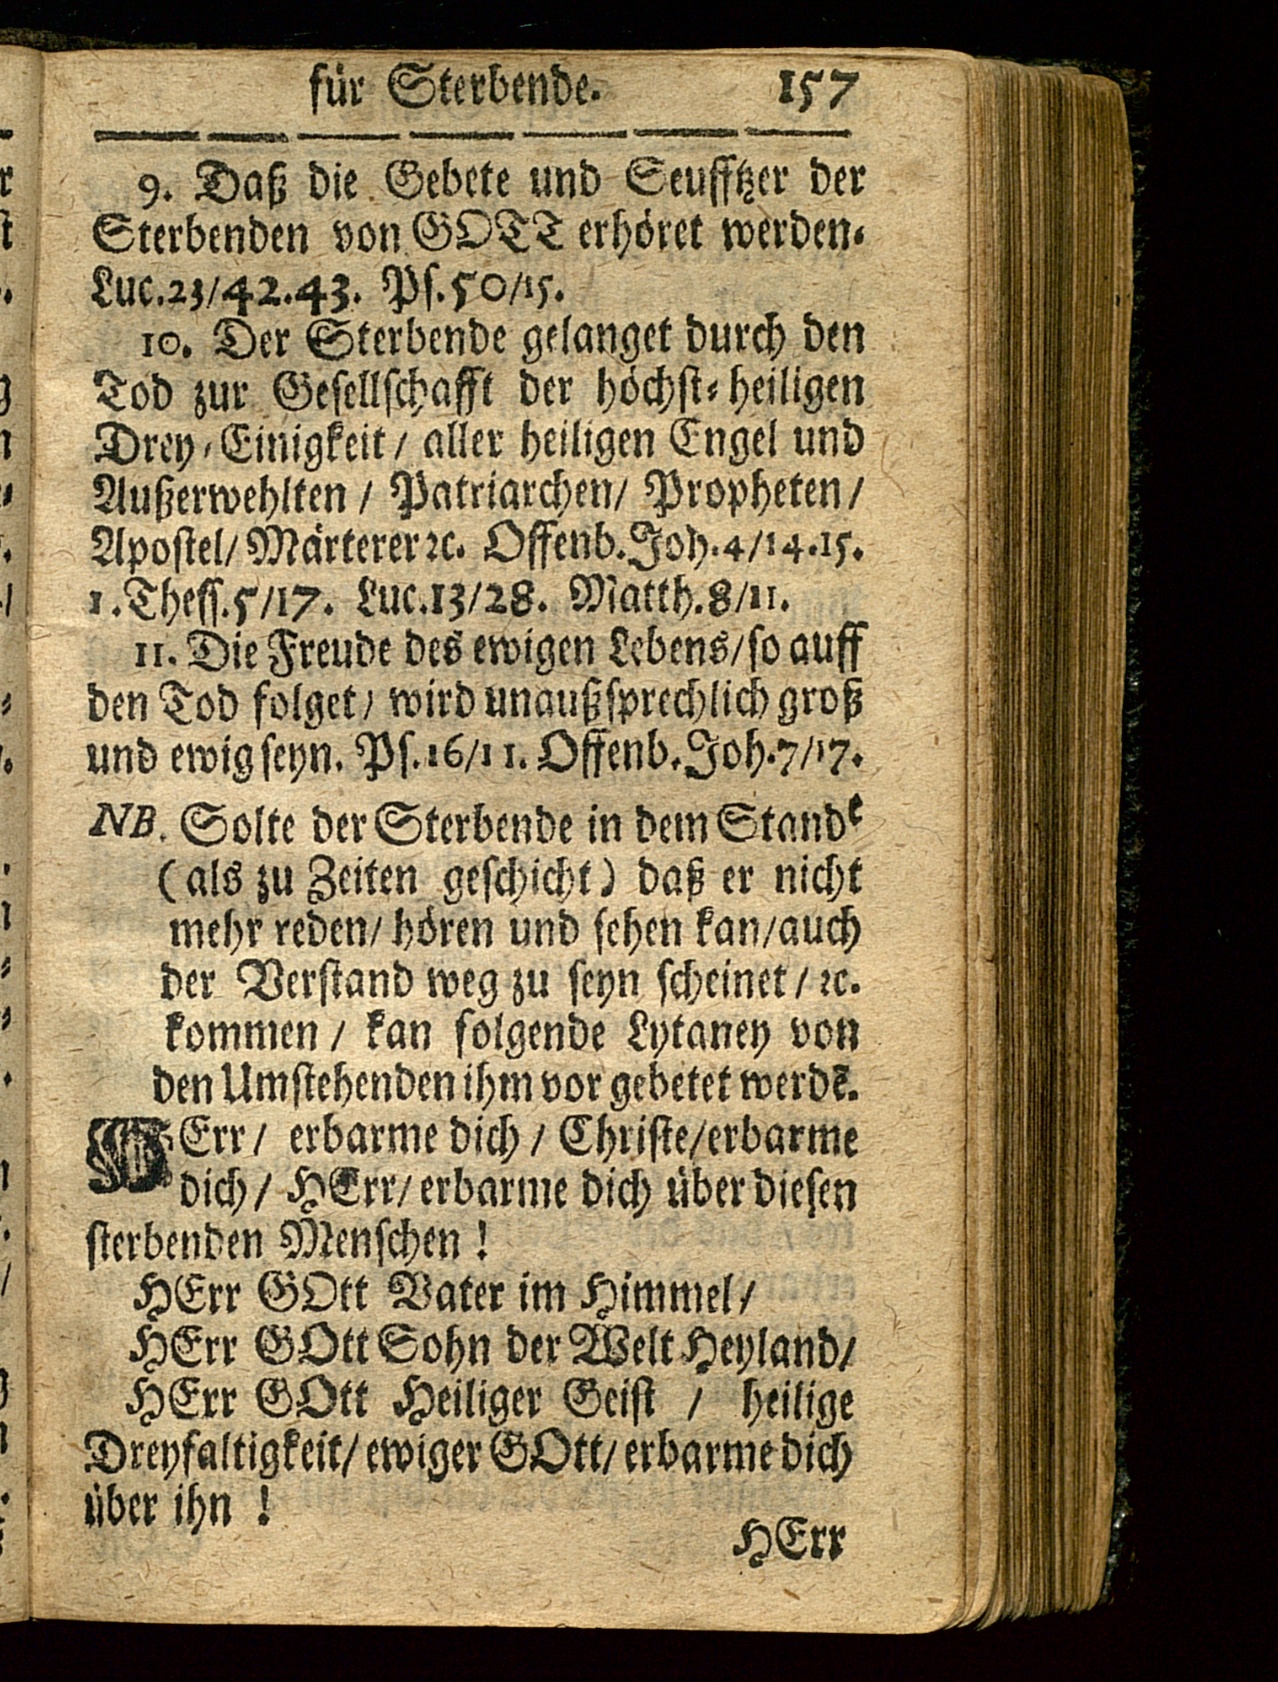 für Sterbende. 157
9. Daß die Gebete und Seufftzer der
Sterbenden von GOTT erhöret werden.
Luc.23/42.43. Ps.50/15.
10. Der Sterbende gelanget durch den
Tod zur Gesellschafft der höchst-heiligen
Drey-Einigkeit / aller heiligen Engel und
Außerwehlten / Patriarchen/ Propheten /
Apostel/ Märterer ꝛc. Offenb.Joh.4/14.15.
1.Thess.5/17. Luc.13/28. Matth.8/11.
11. Die Freude des ewigen Lebens/so auff
den Tod folget/ wird unaußsprechlich groß
und ewig seyn. Ps.16/11. Offenb.Joh.7/17.
NB. Solte der Sterbende in dem Stande
(als zu Zeiten geschicht) daß er nicht
mehr reden/ hören und sehen kan/auch
der Verstand weg zu seyn scheinet / ꝛc.
kommen / kan folgende Lytaney von
den Umstehenden ihm vor gebetet werdẽ.
HErr / erbarme dich / Christe/erbarme
dich / HErr/ erbarme dich über diesen
sterbenden Menschen !
HErr GOtt Vater im Himmel/
HErr GOtt Sohn der Welt Heyland/
HErr GOtt Heiliger Geist / heilige
Dreyfaltigkeit/ ewiger GOtt/ erbarme dich
über ihn !
HErr